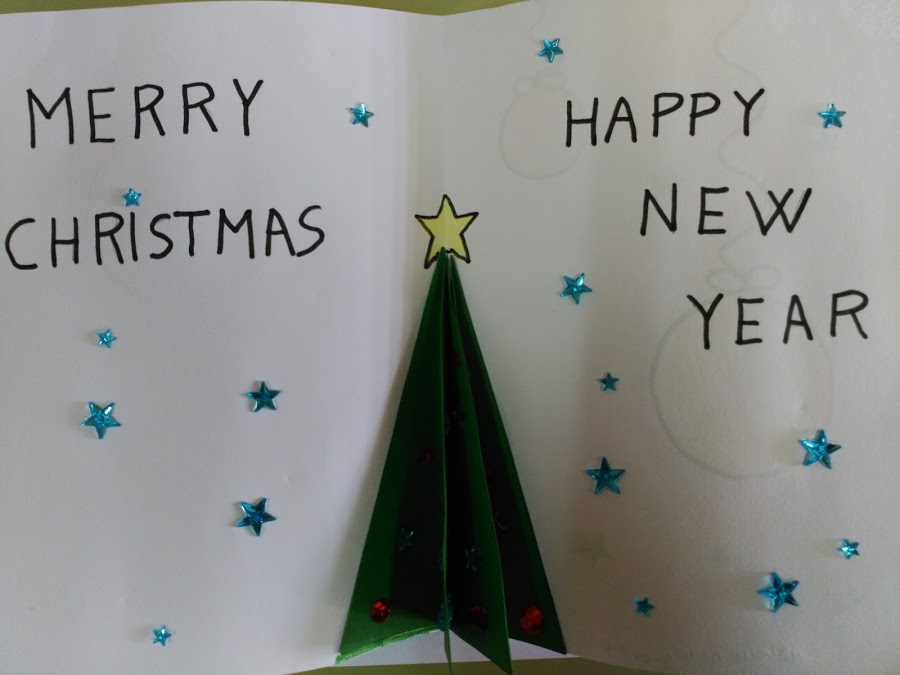 MERRY
CHRISTMAS
HAPPY
NEW
YEAR